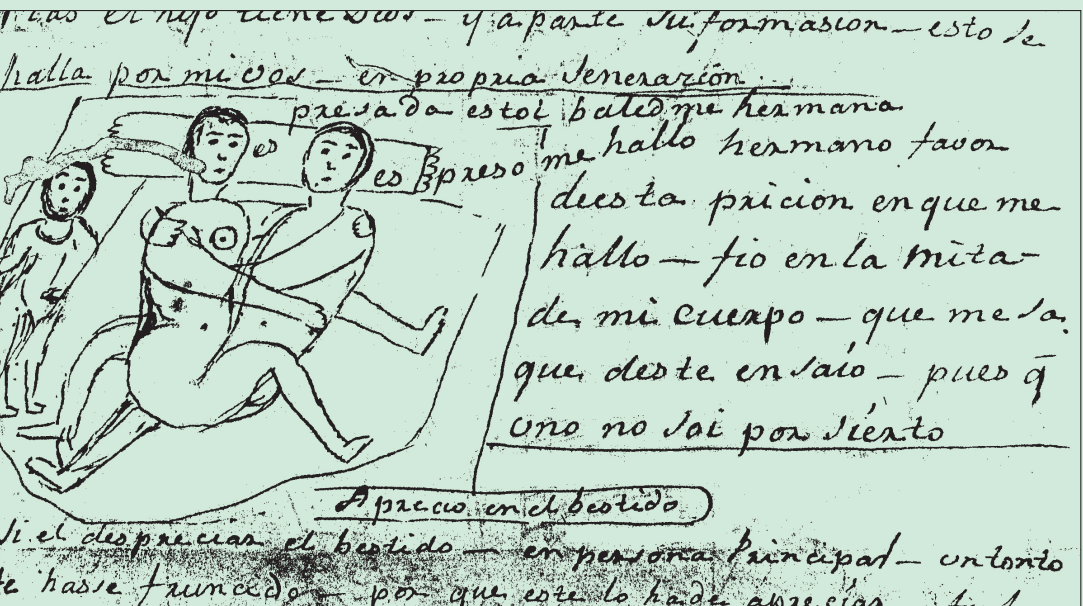 el hijo tiene Dios — y aparte su formasion — esto se
halla por mi voz — en propria Senerazion
presada estoi baledme hermana
es
es preso me hallo hermano favor
deesta pricion en que me
hallo — fio en la mita-
de mi cuerpo — que me sa
que deste ensaio — pues q̄
uno no soi por sierto
Aprecio en el bestido
Si el despreciar el bestido — en persona Principal — un tonto
hasse truncado — por que este lo hade apreciar